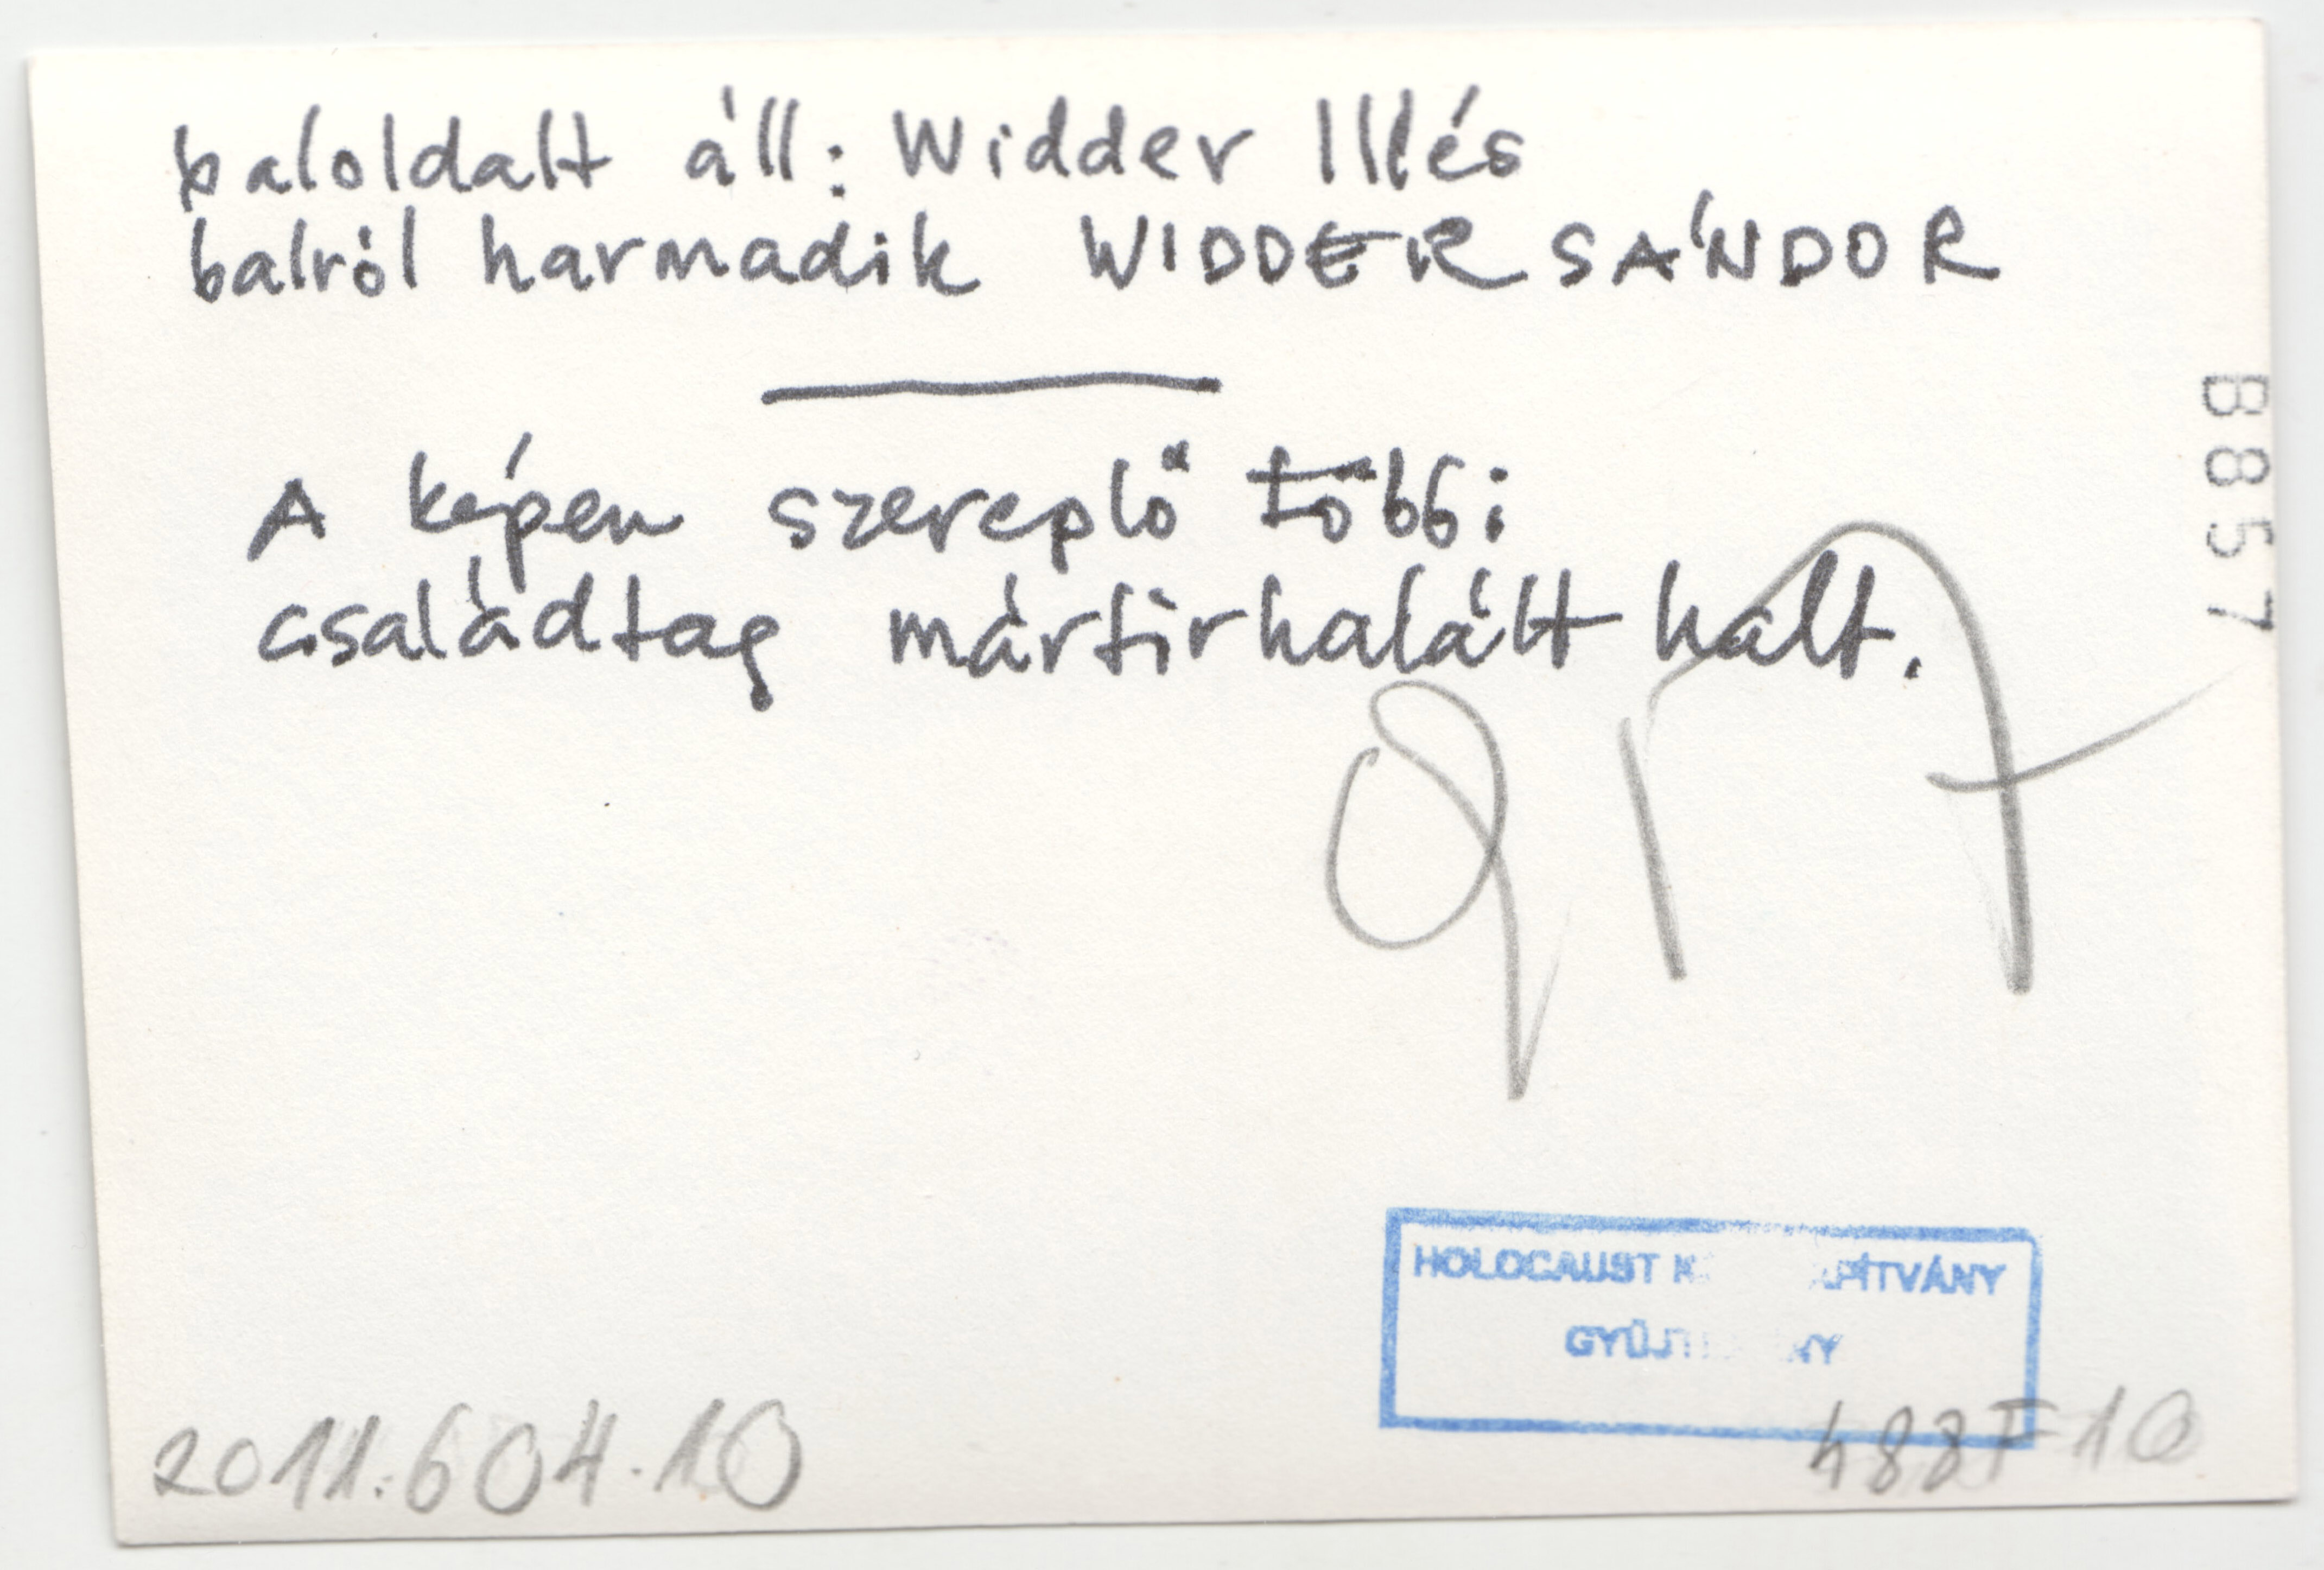 baloldalt áll: Widder Illés
balról harmadik WIDDER SÁNDOR
A képen szereplő többi
családtag mártirhalált halt.
B857
HOLOCAUST K APÍTVÁNY
GYŰJT NY
2011.604.10
488F10